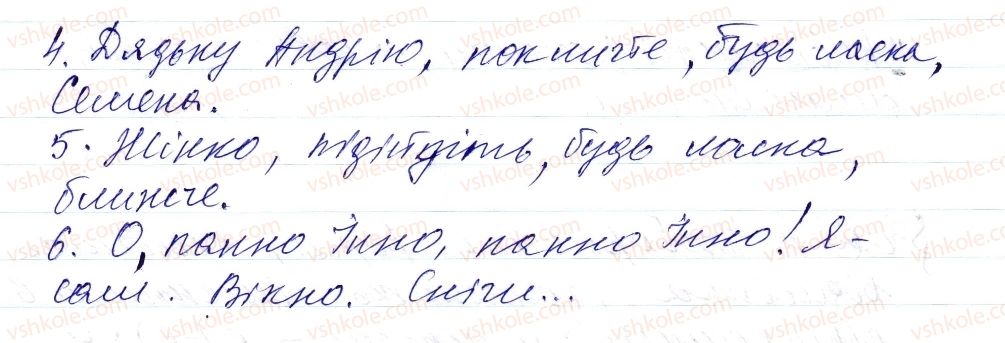 4. Дядьку Андрію, покличте, будь ласка,
Семена.
5. Жінко, підійдіть, будь ласка,
ближче.
6. О, панно Інно, панно Інно! Я -
сам. Вікно. Сніги...